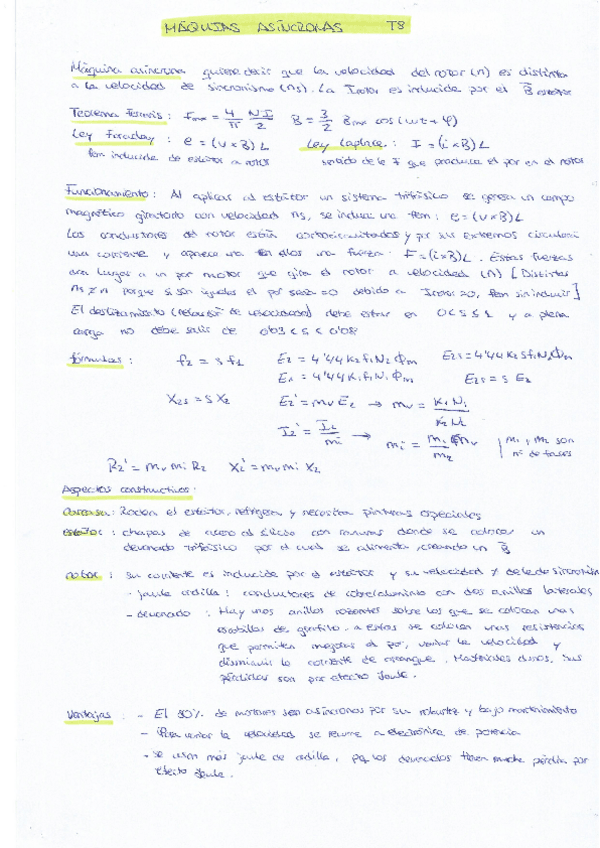 MÁQUINAS ASÍNCRONAS T8
Máquina asíncrona quiere decir que la velocidad del rotor (n) es distinta
a la velocidad de sincronismo (ns). La Irotor es inducida por el B estator
Teorema Ferraris: Fmax = 4/π NI/2 B = 3/2 Bmax cos(wt+φ)
Ley Faraday: e = (v×B)L Ley Laplace: F = (i×B)L
fem inducida de estator a rotor sentido de la F que produce el par en el rotor
Funcionamiento: Al aplicar al estátor un sistema trifásico se genera un campo
magnético giratorio con velocidad ns, se induce una fem: e = (v×B)L
Los conductores del rotor están cortocircuitados y por sus extremos circulará
una corriente y aparece en ellos una fuerza: F = (i×B)L. Estas fuerzas
dan lugar a un par motor que gira el rotor a velocidad (n) [Distintas
ns ≠ n porque si son iguales el par sería = 0 debido a Irotor = 0, fem sin inducir]
El deslizamiento (relación de velocidades) debe estar en 0 < S ≤ 1 y a plena
carga no debe salir de 0'03 < S < 0'08
fórmulas: f2 = s f1 E2 = 4'44 K2 f1 N2 Φm E2s = 4'44 K2 s f1 N2 Φm
E1 = 4'44 K1 f1 N1 Φm E2s = s E2
X2s = s X2 E2' = mv E2 → mv = K1 N1 / K2 N2
I2' = I2/mi → mi = m1 mv / m2 | m1, m2 son
nº de fases
R2' = mv mi R2 X2' = mv mi X2
Aspectos constructivos:
Carcasa: Rodea el estátor, refrigera y necesita pinturas especiales
estátor: chapas de acero al silicio con ranuras donde se coloca un
devanado trifásico por el cual se alimenta, creando un B
rotor: su corriente es inducida por el estátor y su velocidad ≠ de la de sincronismo
- Jaula ardilla: conductores de cobre/aluminio con dos anillos laterales
- devanado: Hay unos anillos rozantes sobre los que se colocan unas
escobillas de grafito. a estas se colocan unas resistencias
que permiten mejorar el par, variar la velocidad y
disminuir la corriente de arranque. Materiales duros, sus
pérdidas son por efecto Joule.
Ventajas: - El 80% de motores son asíncronos por su robustez y bajo mantenimiento
- Para variar la velocidad se recurre a electrónica de potencia
- Se usan más jaula de ardilla, pq los devanados tienen mucha pérdida por
Efecto Joule.